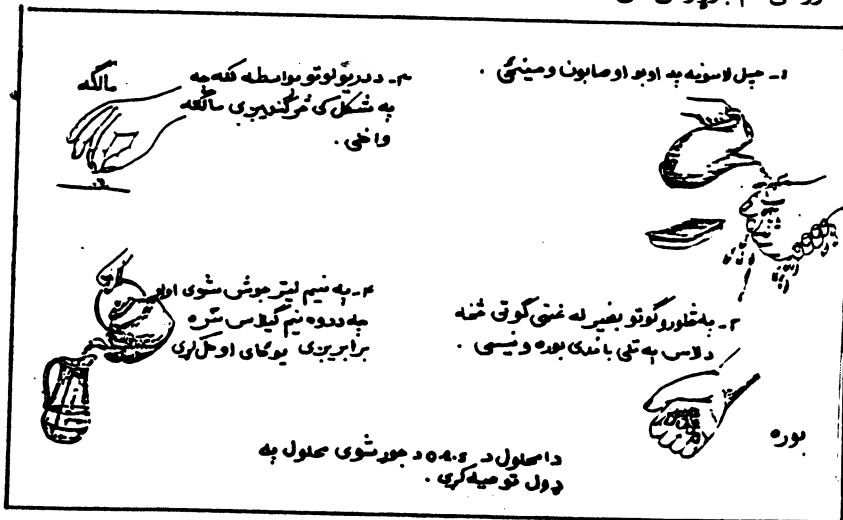 ۱- خپل لاسونه په اوبو او صابون ومینځئ .
۲- په څلورو گوتو بغیر له غټی گوتی څخه
د لاس په تلی باندی بوره ونیسی .
بوره
۳- د دریو گوتو بواسطه لکه چه
په شکل کی څرگندیږی مالگه
واخلی .
مالگه
۴- په نیم لیتر جوش شوی اوبو
چه د دوه نیم گیلاس سره
برابریږی یوځای او حل کړی
دا محلول د O.R.S د جوړ شوی محلول په
ډول توصیه کړی .